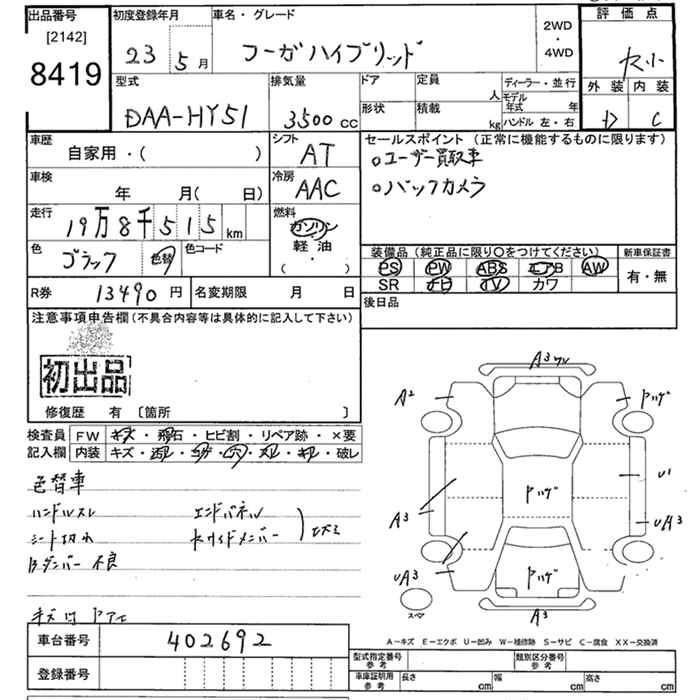 出品番号
[2142]
8419
初度登録年月
23 5月
車名・グレード
フーガハイブリッド
2WD
・
4WD
評価点
外装 内装
D C
型式
DAA-HY51
排気量
3500 CC
ドア
形状
定員 人
積載 kg
ディーラー・並行
モデル年式 年
ハンドル 左・右
車歴
自家用・( )
シフト
AT
セールスポイント (正常に機能するものに限ります)
○ユーザー買取車
○バックカメラ
車検
年 月( 日)
冷房
AAC
走行
19万8千515km
燃料
ガソリン
軽油
( ・ )
色
ブラック
色替
色コード
装備品(純正品に限り○をつけてください)
PS PW ABS エアB AW
SR ナビ TV カワ
新車保証書
有・無
R券 13490円
名変期限 月 日
後日品
注意事項申告欄(不具合内容等は具体的に記入して下さい)
初出品
修復歴 有 〔箇所 〕
検査員
記入欄
FW キズ・飛石・ヒビ割・リペア跡・×要
内装 キズ・
・破レ
色替車
ハンドルスレ
シート切れ
エンドパネル
不良
A3
A2
A3
U1
UA3
UA3
A3
スペア
車台番号 402692
登録番号
A-キズ E-エクボ U-凹み W-補修跡 S-サビ C-腐食 XX-交換済
型式指定番号
参考
類別区分番号
参考
車庫証明用
参考
長さ cm
幅 cm
高さ cm